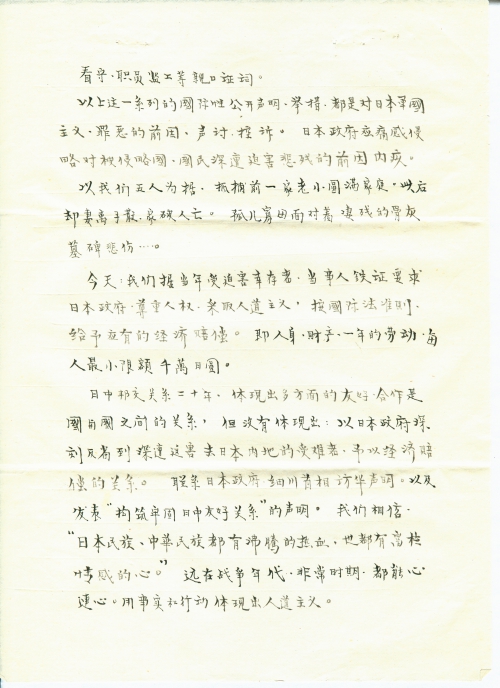 看守、职员监工等亲口证词。
以上这一系列的國际性公开声明、举措、都是对日本军國
主义、罪恶的前因、声讨、控诉。 日本政府应痛感侵
略对被侵略國、國民深遭迫害悲残的前因内疚。
以我们五人为据、抓捕前一家老小圆满家庭、此后
却妻离子散、家破人亡。 孤儿寡母面对着凄残的骨灰
墓碑悲伤…。
今天:我们据当年受迫害幸存者、当事人铁证要求
日本政府、尊重人权、采取人道主义,按國际法准则、
给予应有的经济赔偿。 即人身、财产、一年的劳动、每
人最小限额千萬日圆。
日中邦交关系二十年、体现出多方面的友好、合作是
國与國之间的关系, 但没有体现出:以日本政府深
刻反省到深遭迫害去日本内地的受难者、予以经济赔
偿的关系。 联系日本政府、细川首相访华声明。以及
发表“构筑牢固日中友好关系”的声明。 我们相信、
“日本民族、中華民族都有沸腾的热血、也都有富于
情感的心。” 远在战争年代、非常时期、都能心
连心。用事实和行动体现出人道主义。